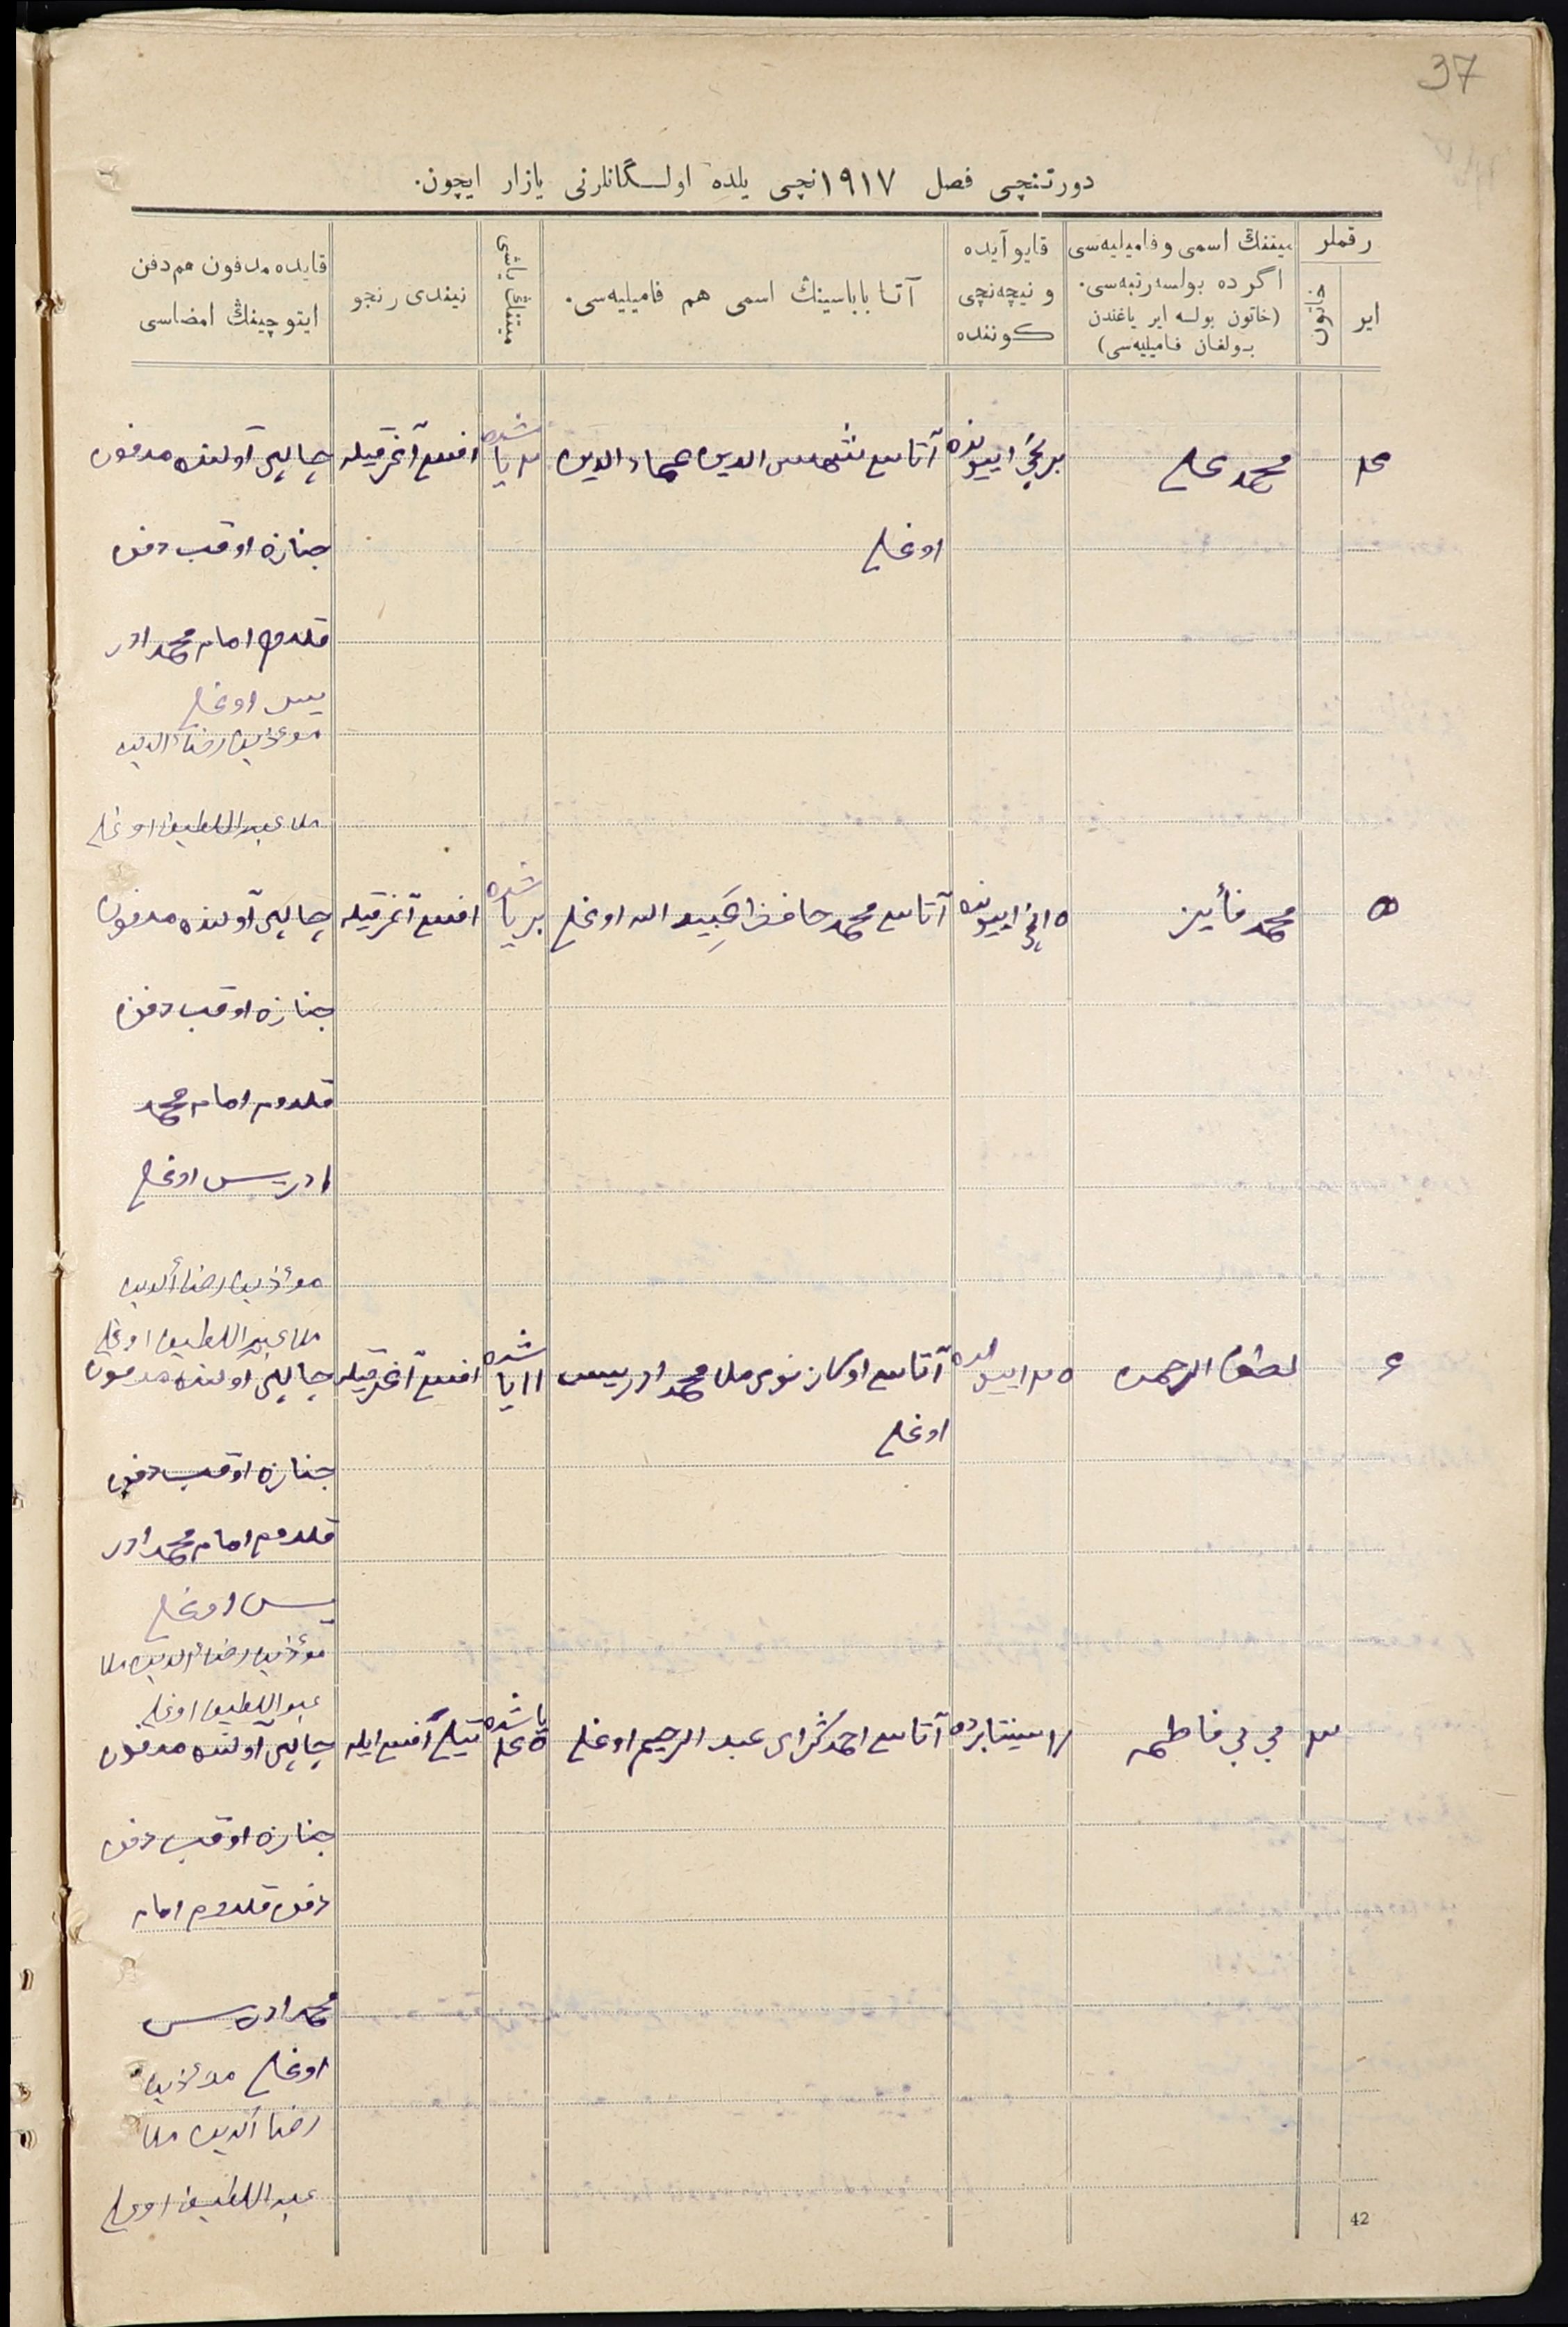 37
دورتنچی فصل ١٩١٧نچی یلده اولـسگانلرنی یازار ایچون.
رقملر
ایر
خاتون
میتننڭ اسمی و فامیلیه‌سی
اگر ده بولسه رتبه‌سی.
(خاتون بولسه ایر یاغندن
بـولغان فامیلیه‌سی)
قایو آیده
و نیچه‌نچی
كـوننده
آتـا باباسینڭ اسمی هم فامیلییه‌سی.
میتننڭ یاشی
نیندی رنجو
قایده مدفون هم دفن
ایتوچینڭ امضاسی
۴
محمد علی
برنچی اییونده
آتاسی شمس الدین عماد الدین
اوغلی
۲ یاشده
افسی آغرقیله
چالپی آولنده مدفون
جنازه اوقب دفن
قلدوم امام محمد ادر
یس اوغلی
موءذین رضاءالدین
ملا عبد اللطیف اوغلی
۵
محمد فأیز
۵ انچی اییونده
آتاسی محمد حافظ حبیب الله اوغلی
بر یاشده
افسی آغرقیله
چالپی آولنده مدفون
جنازه اوقب دفن
قلدوم امام محمد
ادریس اوغلی
موءذین رضاءالدین
ملا عبد اللطیف اوغلی
۶
لطف الرحمن
آتاسی اوكازنوی ملا محمد ادریس
اوغلی
۱۱ یاشده
افسی آغرقیله
چالپی آولنده مدفون
جنازه اوقب دفن
قلدوم امام محمد ادر
یس اوغلی
موءذین رضاءالدین ملا
عبد اللطیف اوغلی
۳
بی بی فاطمه
سینتابرده
آتاسی احمد كرای عبد الرحیم اوغلی
یاشده
افسی ایله
چالپی آولنده مدفون
جنازه اوقب دفن
دفن قلدوم امام
محمد ادریس
اوغلی موءذین
رضاءالدین ملا
عبد اللطیف اوغلی
42